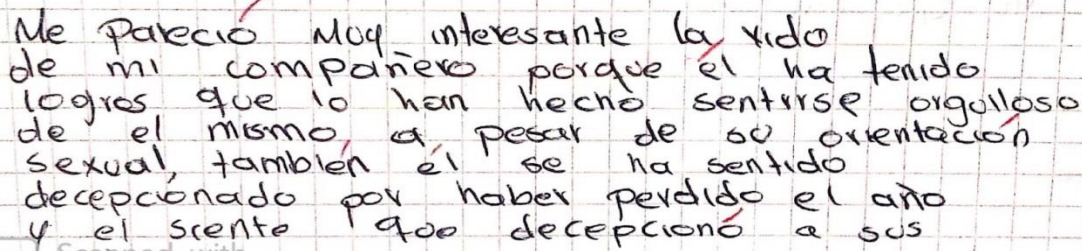 Me Pareció Muy interesante la vida
de mi compañero porque él ha tenido
logros que lo han hecho sentirse orgulloso
de el mismo, a pesar de su orientación
sexual, también él se ha sentido
decepcionado por haber perdido el año
y el siente que decepcionó a sus